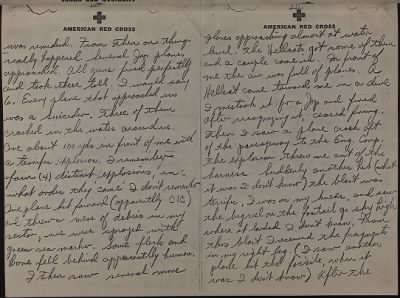 AMERICAN RED CROSS
was remedied. From then on things
really happened. Several Jap planes
approached. All guns fired perfectly
and took their toll. I would say
6. Every plane that approached us
was a suicider. Three of them
crashed in the water around us.
One about 100 yds in front of me with
a terrific explosion. I remember
four (4) distinct explosions, in
what order they came I don't remember
One plane hit forward (apparently CIC)
and threw a mess of debris in my
sector, we were sprayed with
green sea marker. Some flesh and
bone fell behind apparently human.
I then saw several more
AMERICAN RED CROSS
planes approaching almost at water
level. The Hellcats got some of them
and a couple came in. In front of
me the air was full of planes. A
Hellcat came toward me in a dive
I mistook it for a Jap and fired
after recognizing it, ceased firing.
Then I saw a plane crash aft
of the passageway to the Eng. Comp.
the explosion threw me out of the
harness. Suddenly another hit (what
it was I don't know) the blast was
terrific, I was on my knees, and saw
the big rail on the fantail go sky high
where it landed I don't know. From
this blast I received the fragment
in my right leg (I saw another
plane hit the fantail, when it
was I don't know) After the